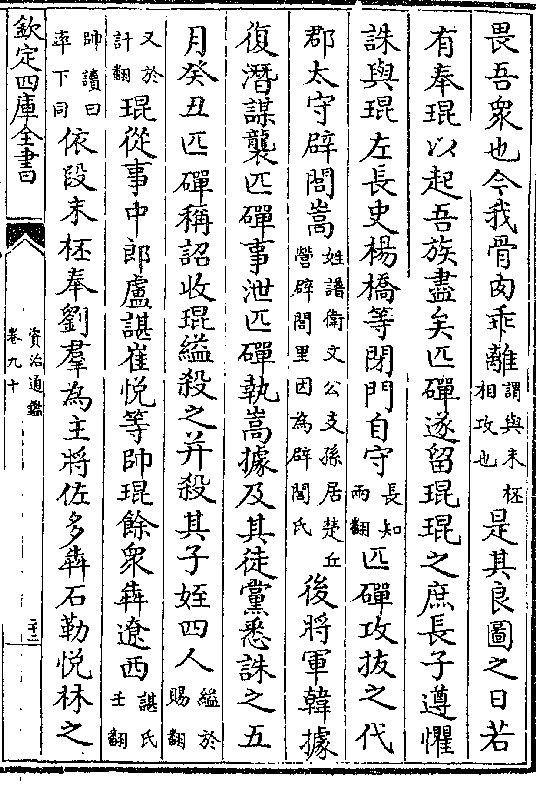 畏吾衆也今我骨肉乖離謂與末柸相攻也是其良圖之日若
有奉琨以起吾族盡矣匹磾遂留琨琨之庶長子遵懼
誅與琨左長史楊橋等閉門自守長知兩翻匹磾攻拔之代
郡太守辟閭嵩姓譜衛文公支孫居楚丘營辟閭里因為辟閭氏後將軍韓據
復潛謀襲匹磾事泄匹磾執嵩據及其徒黨悉誅之五
月癸丑匹磾稱詔收琨縊殺之并殺其子姪四人縊於賜翻
又於計翻琨從事中郎盧諶崔悅等帥琨餘衆犇遼西諶氏壬翻
帥讀曰率下同依段末柸奉劉羣為主將佐多犇石勒悅林之
欽定四庫全書
資治通鑑
卷九十
二十三